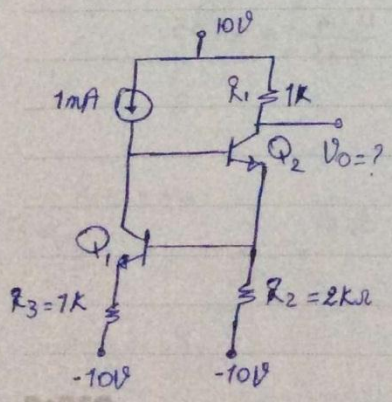 10V
1mA
R1 1K
Q2 V0=?
Q1
R3=1K
R2=2KΩ
-10V -10V